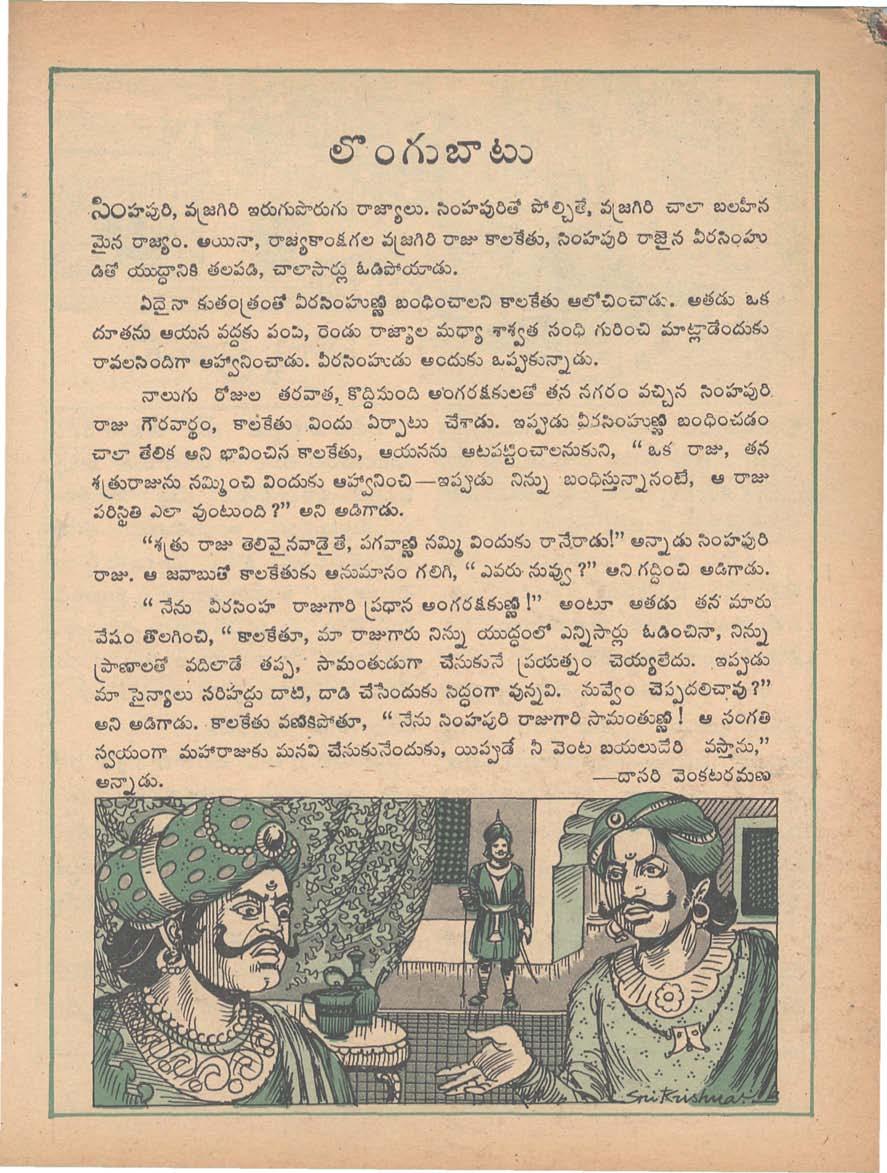 లొంగుబాటు
సింహపురి, వజ్రగిరి ఇరుగుపొరుగు రాజ్యాలు. సింహపురితో పోల్చితే, వజ్రగిరి చాలా బలహీన
మైన రాజ్యం. అయినా, రాజ్యకాంక్షగల వజ్రగిరి రాజు కాలకేతు, సింహపురి రాజైన వీరసింహు
డితో యుద్ధానికి తలపడి, చాలాసార్లు ఓడిపోయాడు.
ఏదైనా కుతంత్రంతో వీరసింహుణ్ణి బంధించాలని కాలకేతు ఆలోచించాడు. అతడు ఒక
దూతను ఆయన వద్దకు పంపి, రెండు రాజ్యాల మధ్యా శాశ్వత సంధి గురించి మాట్లాడేందుకు
రావలసిందిగా ఆహ్వానించాడు. వీరసింహుడు అందుకు ఒప్పుకున్నాడు.
నాలుగు రోజుల తరవాత, కొద్దిమంది అంగరక్షకులతో తన నగరం వచ్చిన సింహపురి
రాజు గౌరవార్థం, కాలకేతు విందు ఏర్పాటు చేశాడు. ఇప్పుడు వీరసింహుణ్ణి బంధించడం
చాలా తేలిక అని భావించిన కాలకేతు, ఆయనను ఆటపట్టించాలనుకుని, “ ఒక రాజు, తన
శత్రురాజును నమ్మించి విందుకు ఆహ్వానించి—ఇప్పుడు నిన్ను బంధిస్తున్నానంటే, ఆ రాజు
పరిస్థితి ఎలా వుంటుంది ?” అని అడిగాడు.
“శత్రు రాజు తెలివైనవాడైతే, పగవాణ్ణి నమ్మి విందుకు రానేరాడు!” అన్నాడు సింహపురి
రాజు. ఆ జవాబుతో కాలకేతుకు అనుమానం కలిగి, “ ఎవరు నువ్వు ?” అని గద్దించి అడిగాడు.
“ నేను వీరసింహ రాజుగారి ప్రధాన అంగరక్షకుణ్ణి !” అంటూ అతడు తన మారు
వేషం తొలగించి, “ కాలకేతూ, మా రాజుగారు నిన్ను యుద్ధంలో ఎన్నిసార్లు ఓడించినా, నిన్ను
ప్రాణాలతో వదిలాడే తప్ప, సామంతుడుగా చేసుకునే ప్రయత్నం చెయ్యలేదు. ఇప్పుడు
మా సైన్యాలు సరిహద్దు దాటి, దాడి చేసేందుకు సిద్ధంగా వున్నవి. నువ్వేం చెప్పదలిచావు ?”
అని అడిగాడు. కాలకేతు వణికిపోతూ, “ నేను సింహపురి రాజుగారి సామంతుణ్ణి ! ఆ సంగతి
స్వయంగా మహారాజుకు మనవి చేసుకునేందుకు, యిప్పుడే నీ వెంట బయలుదేరి వస్తాను,”
అన్నాడు.
—దాసరి వెంకటరమణ
Sri Krishna